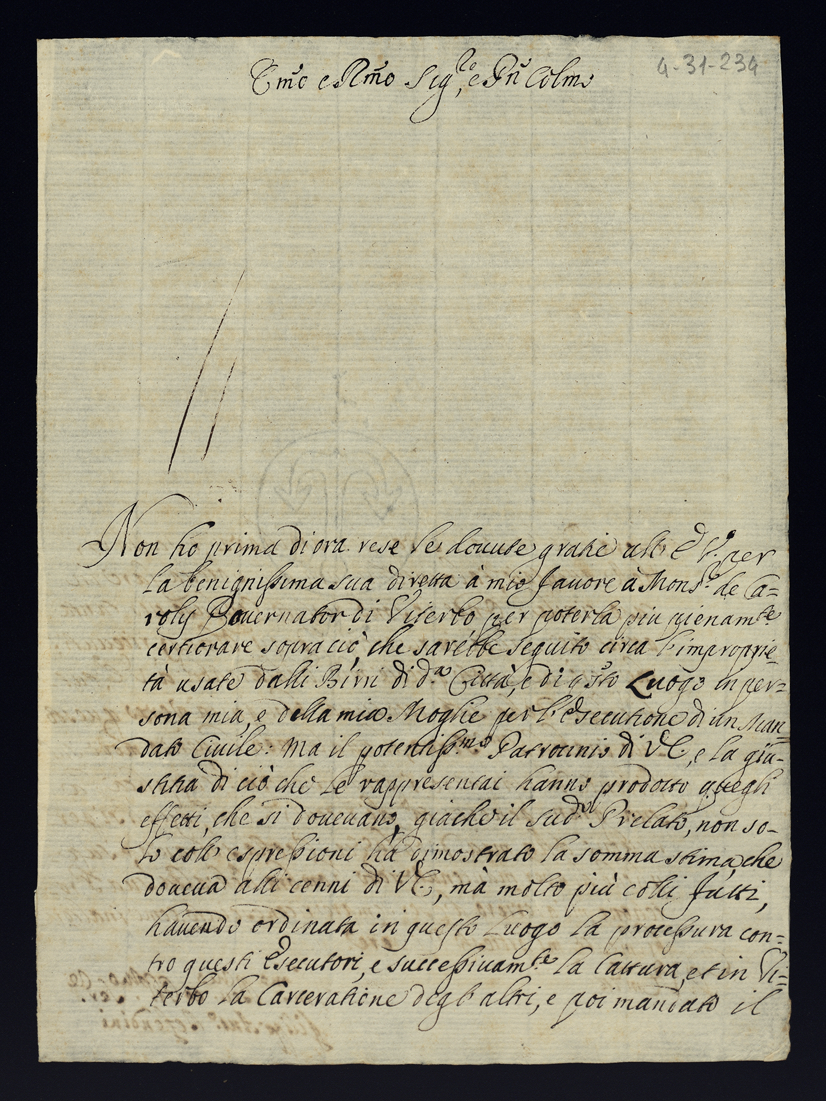 Em̃o e Rm̃o Sig.re, e Pñ Colmo
4-31-234
Non ho prima di ora rese le douute gratie all' E. V. per
la benignissima sua diretta à mio fauore à Mons.r de Ca=
rolis Gouernator di Viterbo per poterla piu pienam.te
certiorare sopra ciò che sarebbe seguito circa l'improprie=
tà usate dalli Birri di d.a Città, e di q.sto Luogo in per=
sona mia, e della mia Moglie per l'Esecutione di un Man=
dato Ciuile: Ma il potentiss.mo Patrocinio di V.E., e la giu=
stitia di ciò che le rappresentai hanno prodotto quegli
effetti, che si doueuano, giache il sud.o Prelato, non so=
lo coll' espressioni hà dimostrato la somma stima, che
doueua alli cenni di V.E., mà molto più colli fatti,
hauendo ordinata in questo Luogo la processura con=
tro questi Esecutori, e successiuam.te la Cattura, et in Vi=
terbo la Carceratione degl'altri, e poi mandato il